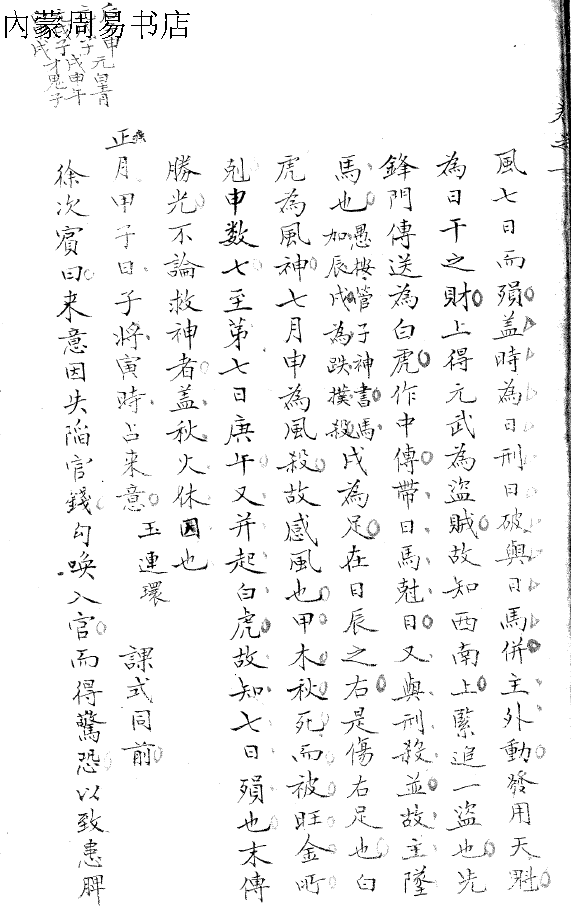 內蒙周易书店
風七日而殞盖時為日刑日破與日馬併主外動發用天魁
為日干之財上得元武為盜賊故知西南上緊追一盜也先
鋒門傳送為白虎作中傳帶日馬尅日又與刑殺並故主墜
馬也愚按管子神書馬加辰戌為跌撲殺戌為足在日辰之右是傷右足也白
虎為風神七月申為風殺故感風也甲木秋死而被旺金所
剋申数七至第七日庚午又并起白虎故知七日殞也末傳
勝光不論救神者盖秋火休囚也
正月甲子日子將寅時占来意 玉連環 課式同前
徐次賓曰来意因失陷官錢勾喚入官而得驚恐以致患脾